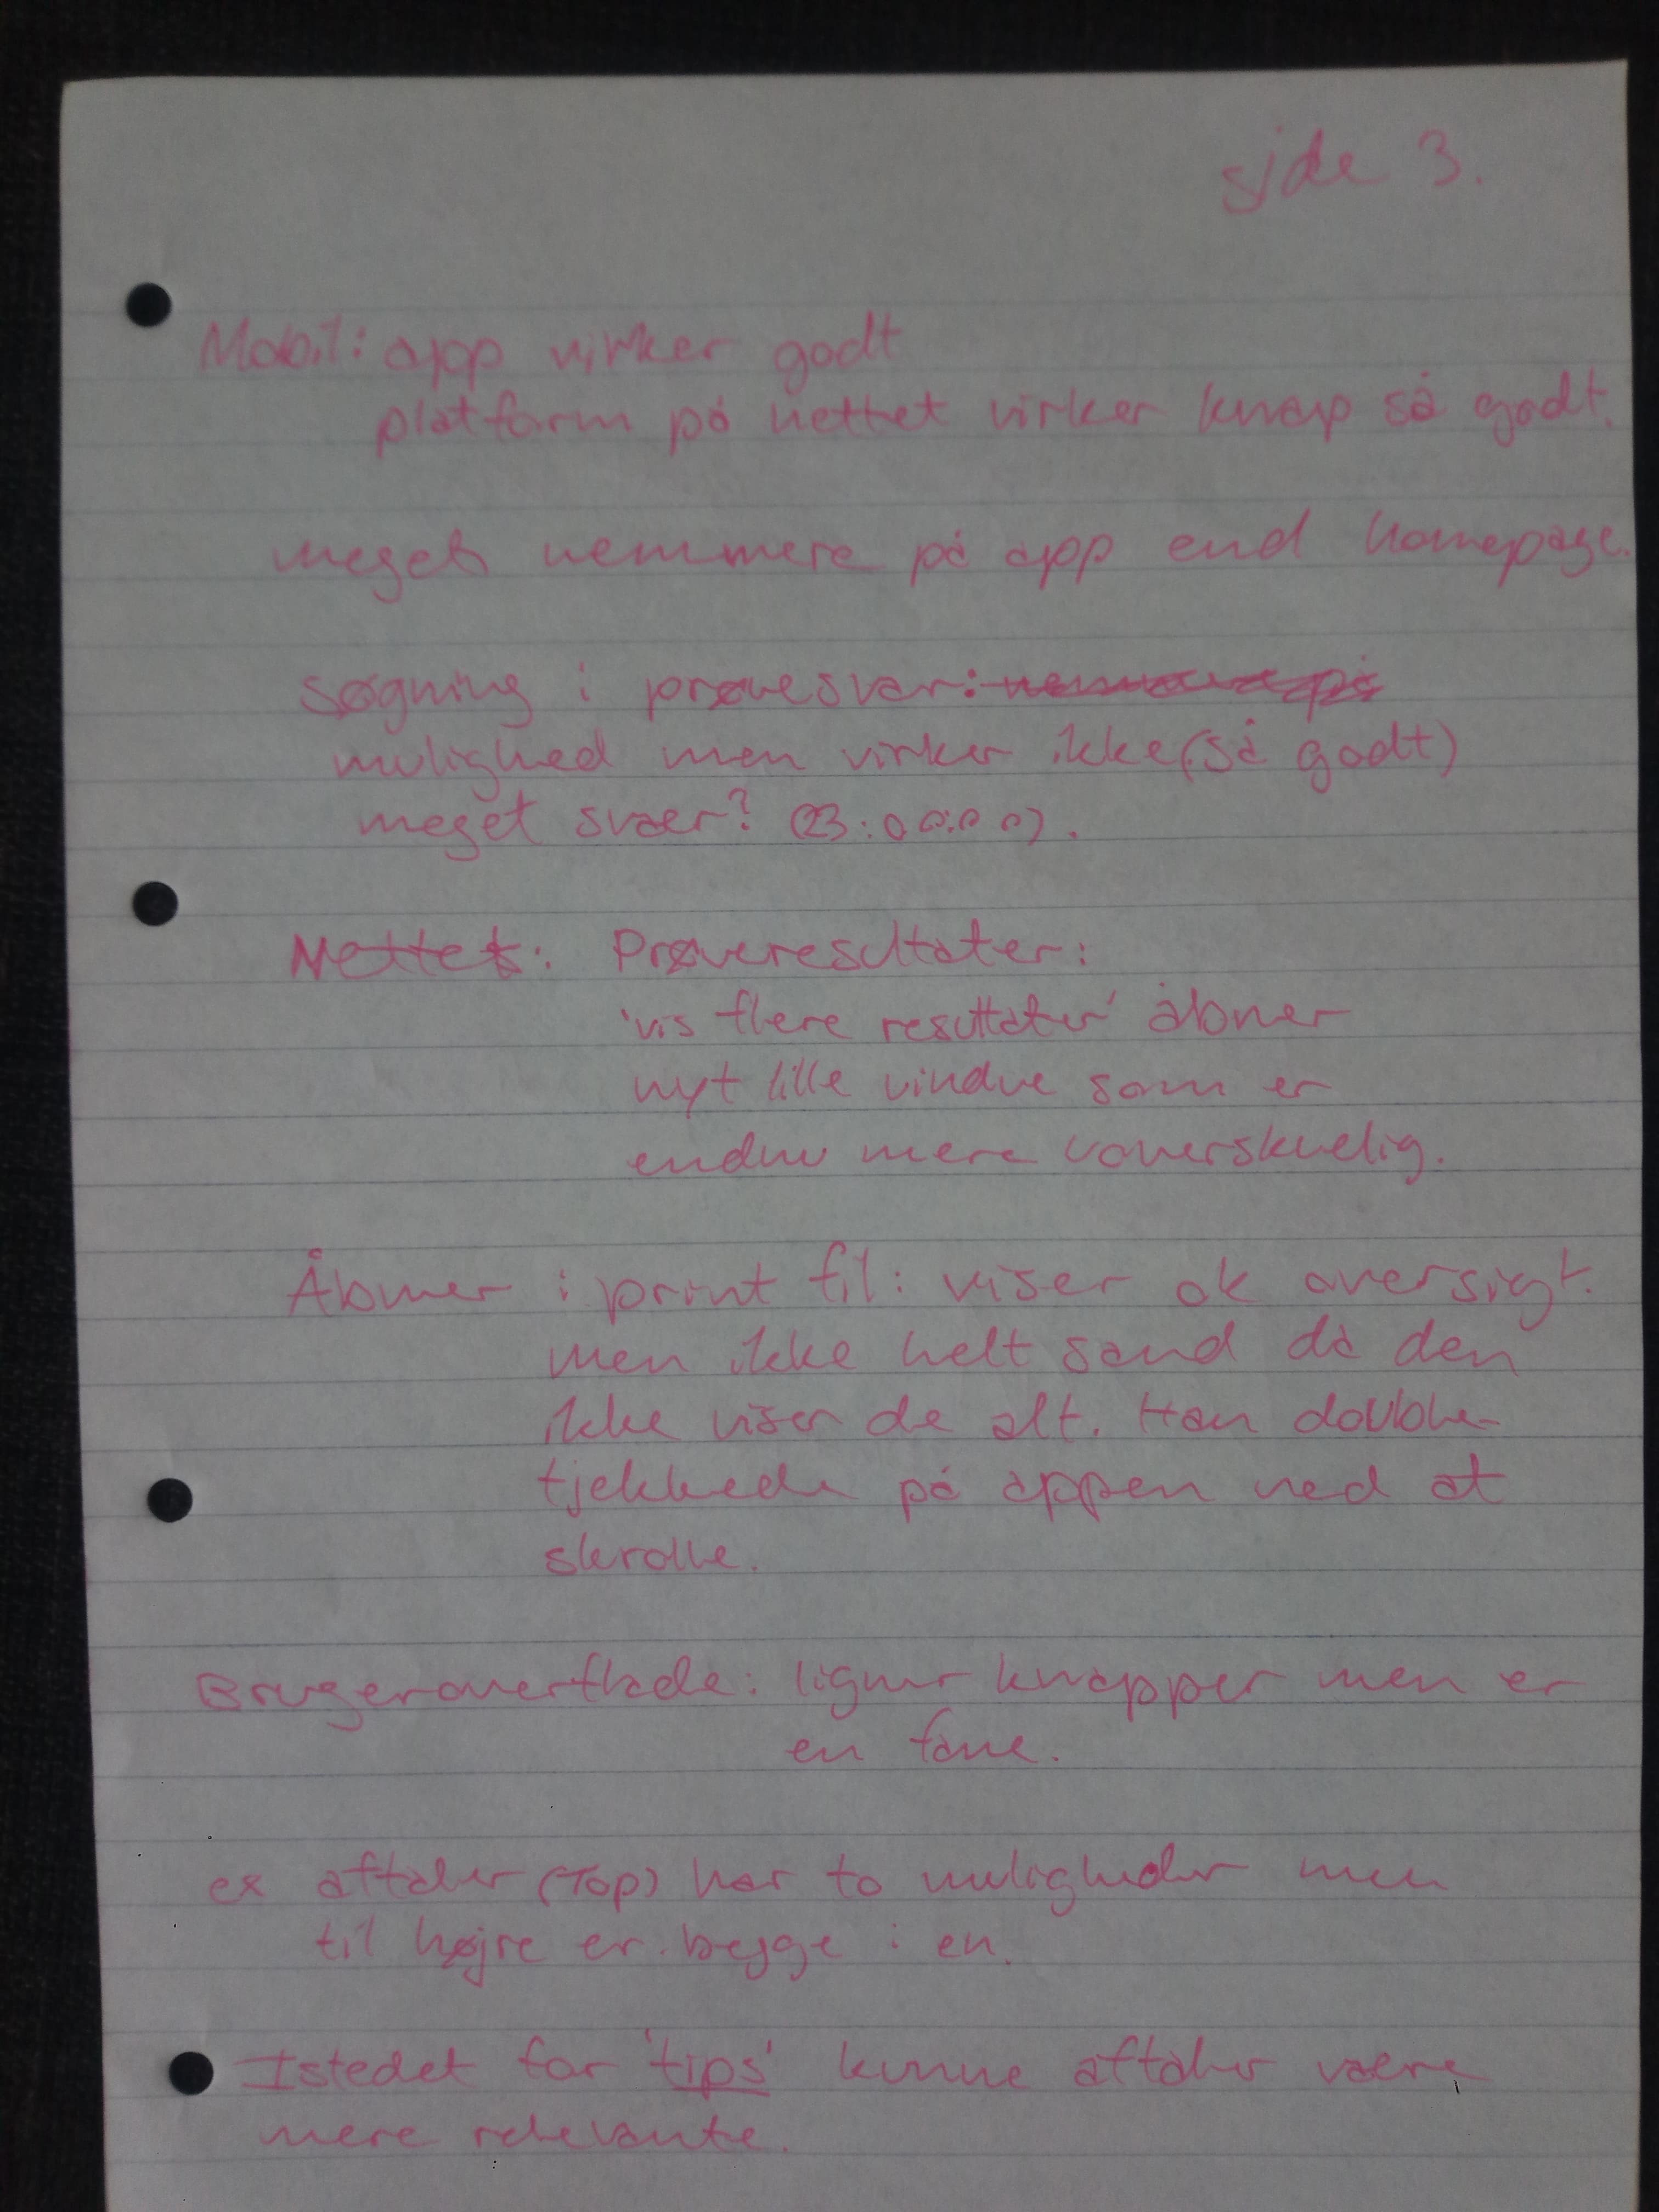 side 3.
Mobil: app virker godt
platform på nettet virker knap så godt.
meget nemmere på app end homepage.
søgning i prøvesvar: nemmere på
mulighed men virker ikke (så godt)
meget svær? (23:00:00).
Nettet: Prøveresultater:
'vis flere resultater' åbner
nyt lille vindue som er
endnu mere uoverskuelig.
Åbner i print fil: viser ok oversigt.
men ikke helt sand da den
ikke viser de alt. Han double-
tjekkede på appen ved at
skrolle.
Brugeroverflade: ligner knapper men er
en fane.
ex aftaler (Top) har to muligheder men
til højre er begge i en.
Istedet for 'tips' kunne aftaler være
mere relevante.